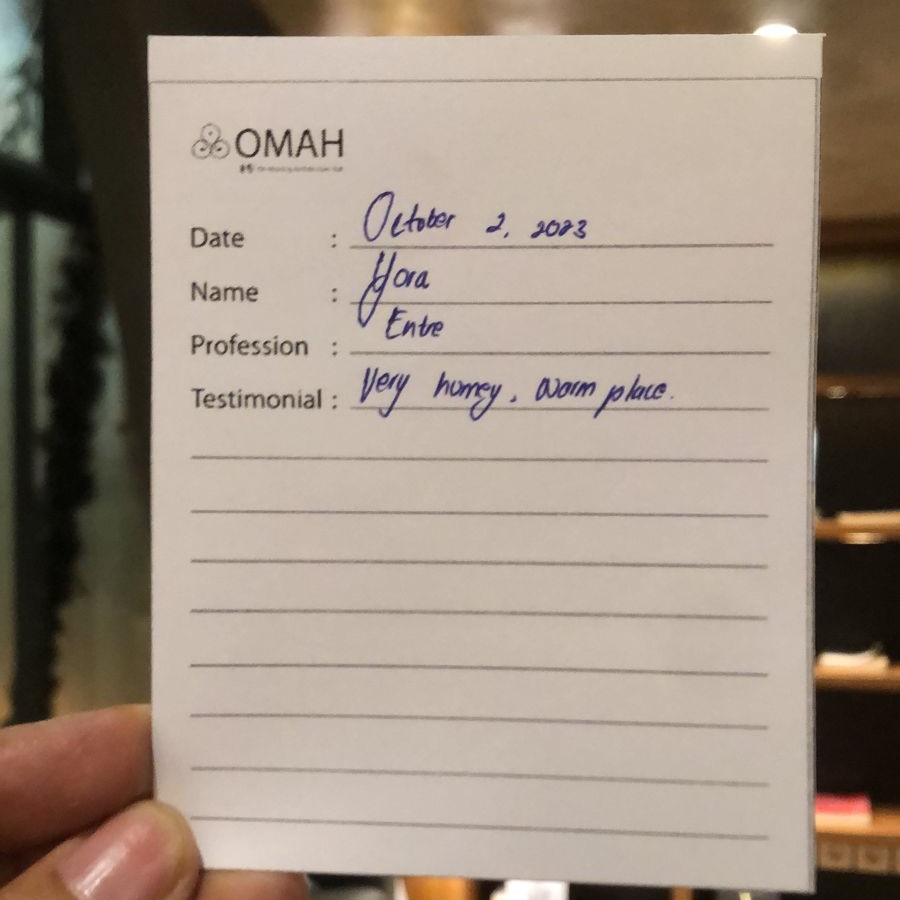 OMAH
Date : October 2, 2023
Name : Yora
Profession : Entre
Testimonial : Very homey, warm place.